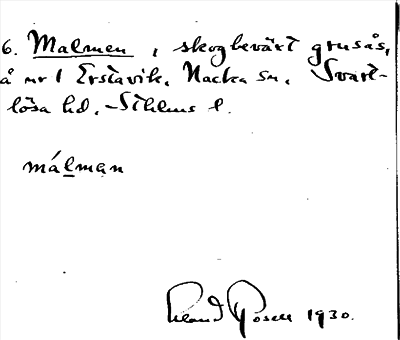 6. Malmen, skogbevärt grusås,
å nr 1 Erstavik, Nacka sn. Svart-
lösa hd. - Sthlms l.
málman
1930.